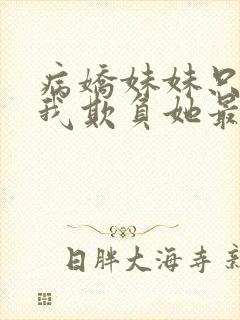 病嬌妹妹只
我欺負她最
日胖大海寺